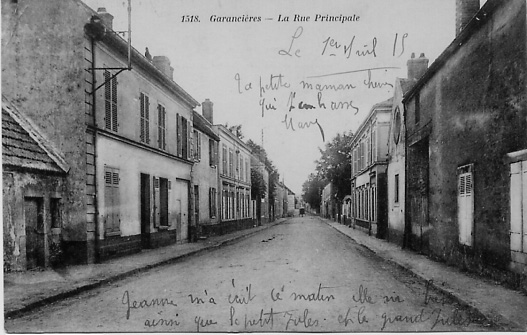 1518. Garancières — La Rue Principale
Le 1er Avril 15
Ta petite maman chérie
qui t'embrasse
Mary
Jeanne m'a écrit ce matin elle va bien
ainsi que le petit Jules et le grand Jules